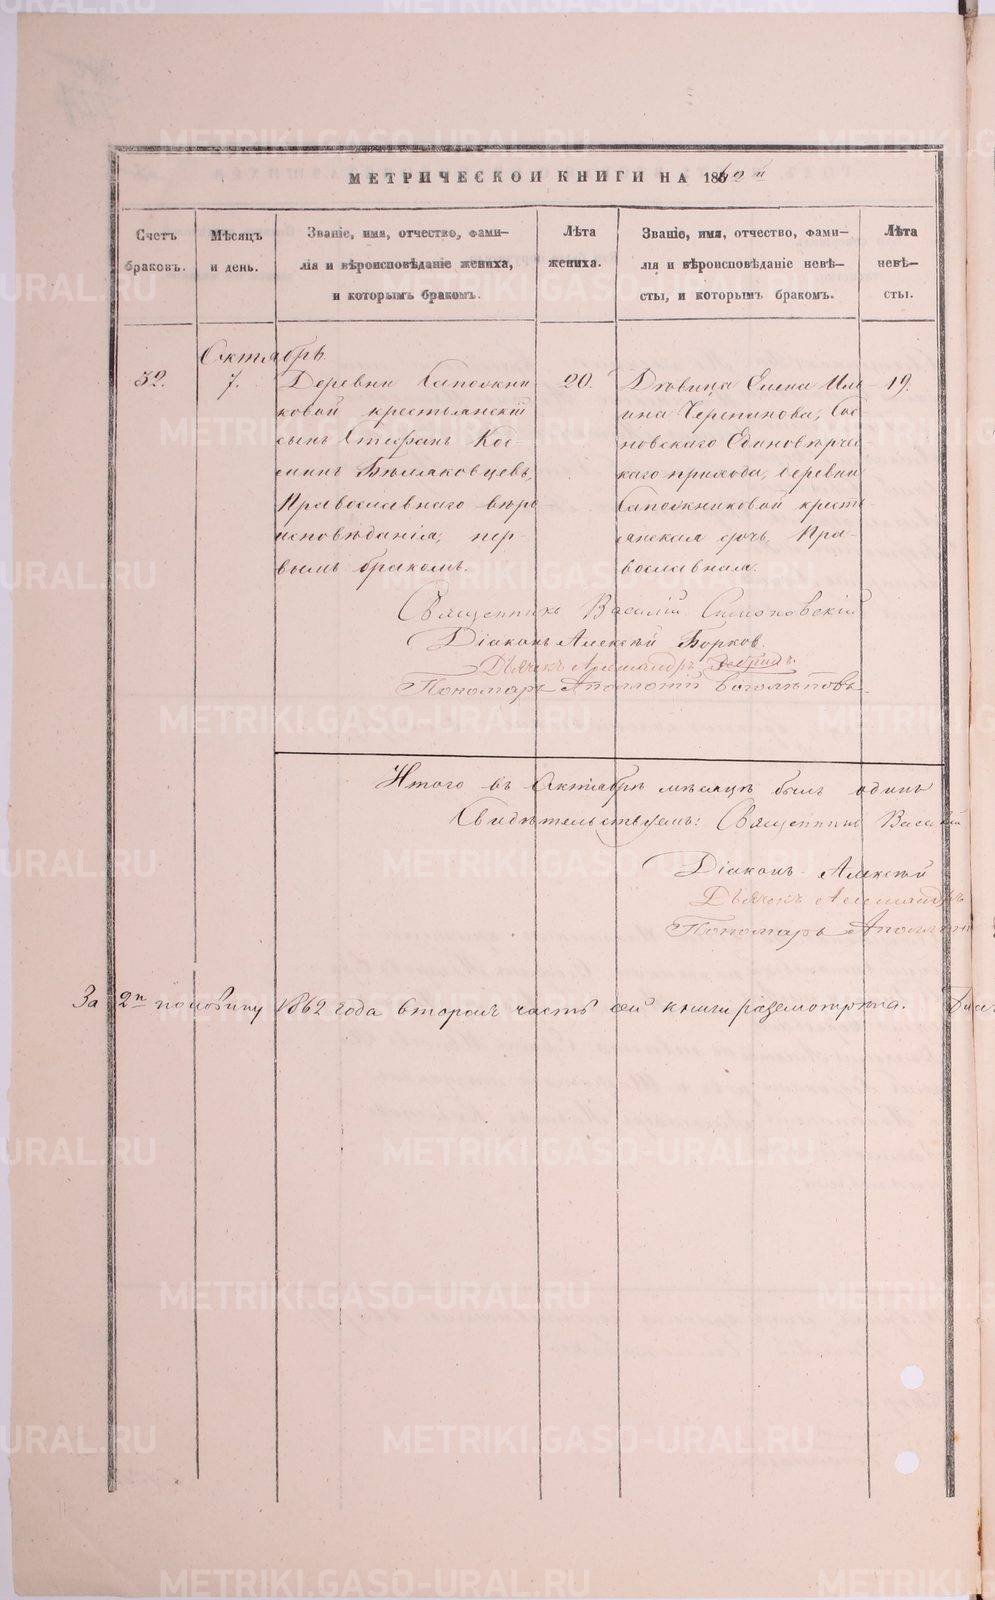 МЕТРИЧЕСКОЙ КНИГИ НА 1862й
Счетъ браковъ.
Мѣсяцъ и день.
Званіе, имя, отчество, фами-
лія и вѣроисповѣданіе жениха,
и которымъ бракомъ.
Лѣта жениха.
Званіе, имя, отчество, фами-
лія и вѣроисповѣданіе невѣ-
сты, и которымъ бракомъ.
Лѣта невѣ-
сты.
Октябрь
32.
7.
Деревни Сапожни
ковой крестьянскій
сынъ Стефанъ Кос-
минъ Бѣляковцевъ,
Православнаго вѣро
исповѣданія, пер-
вымъ бракомъ.
20.
Дѣвица Елена Иль-
ина Черепанова, Сос-
новскаго Единовѣрчес-
каго прихода, деревни
Сапожниковой кресть
янская дочь, Пра-
вославная.
19.
Священникъ Василій Симоновскій
Діаконъ Алексѣй Борков.
Дьячекъ Александръ
Пономарь Аполлоній Боголѣповъ.
Итого въ Октябрѣ мѣсяцѣ былъ одинъ
Свидѣтельствуемъ: Священникъ Василій
Діаконъ Алексѣй
Дьячекъ Александръ
Пономарь Аполлоній
За 2ю половину 1862 года вторая часть сей книги разсмотрѣна.
METRIKI.GASO-URAL.RU